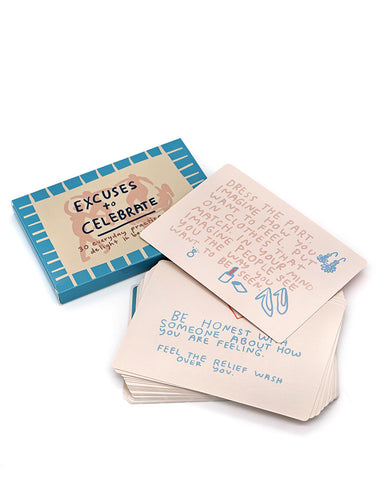 EXCUSES
to
CELEBRATE
30 everyday
delight in
DRESS THE PART.
IMAGINE HOW YOU
WANT TO FEEL. PUT
ON CLOTHES THAT
MATCH. IN YOUR MIND
IMAGINE PEOPLE SEE
YOU THE WAY YOU
WANT TO BE SEEN.
BE HONEST WITH
SOMEONE ABOUT HOW
YOU ARE FEELING.
FEEL THE RELIEF WASH
OVER YOU.